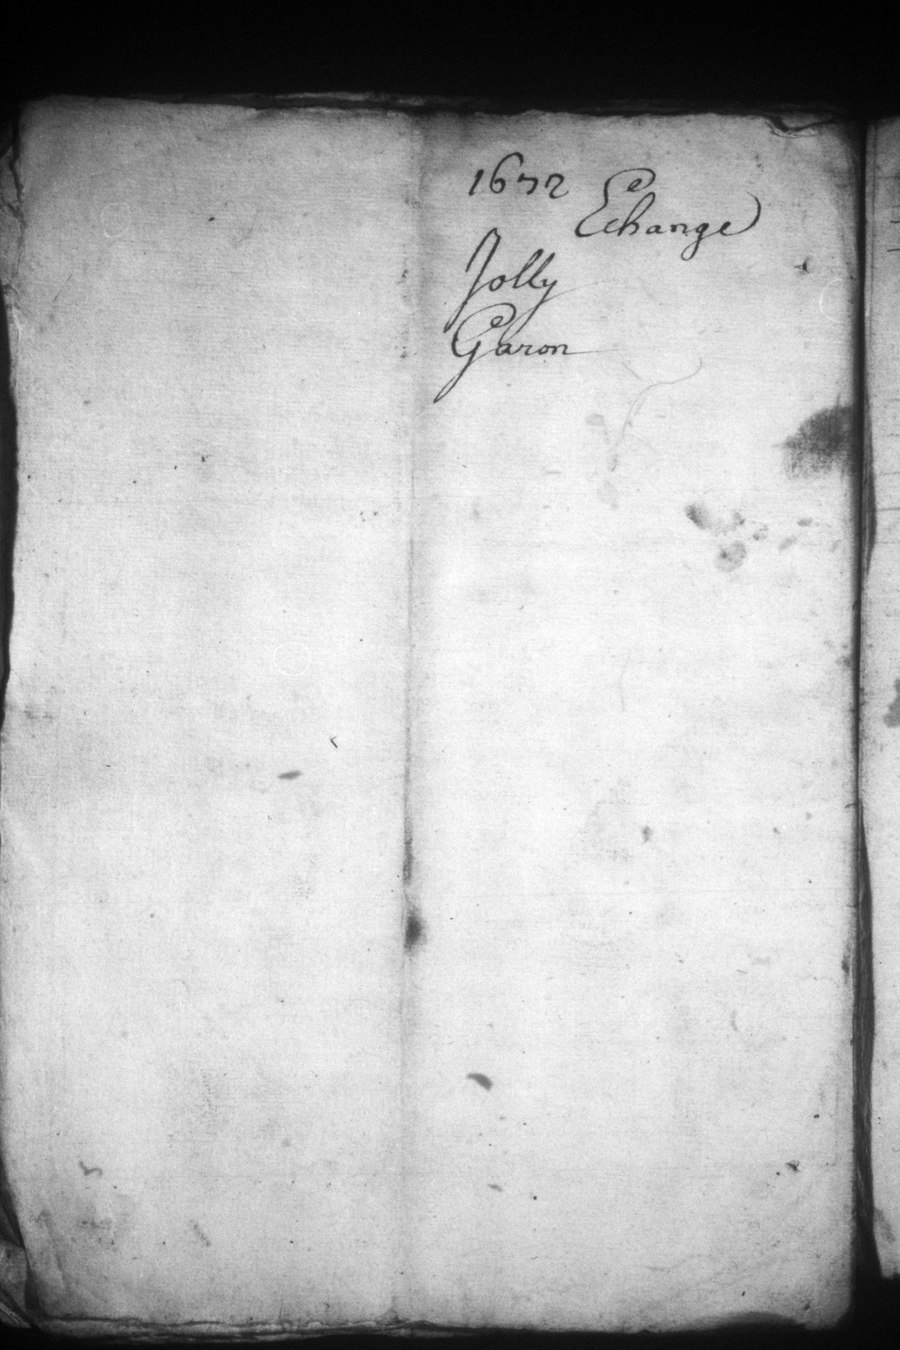 1672
Echange
Jolly
Garon